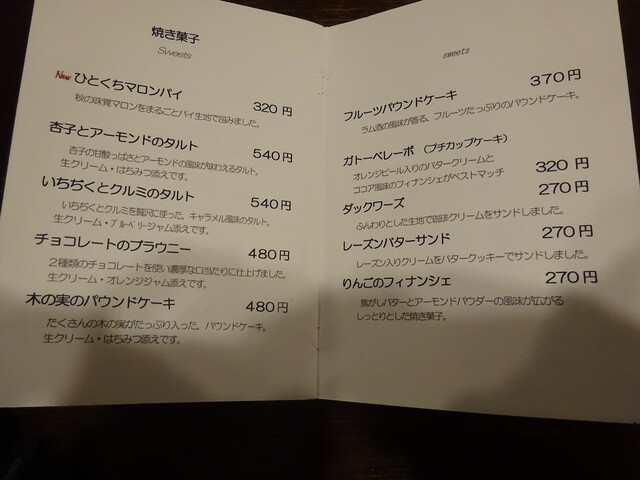 焼き菓子
Sweets
New ひとくちマロンパイ
320 円
秋の味覚マロンをまるごとパイ生地で包みました。
杏子とアーモンドのタルト
540 円
杏子の甘酸っぱさとアーモンドの風味が味わえるタルト。
生クリーム・はちみつ添えです。
いちぢくとクルミのタルト
540 円
いちぢくとクルミを贅沢に使った、キャラメル風味のタルト。
生クリーム・ブルーベリージャム添えです。
チョコレートのブラウニー
480 円
２種類のチョコレートを使い濃厚な口当たりに仕上げました。
生クリーム・オレンジジャム添えです。
木の実のパウンドケーキ
480 円
たくさんの木の実がたっぷり入った、パウンドケーキ。
生クリーム・はちみつ添えです。
sweets
フルーツパウンドケーキ
370 円
ラム酒の風味が香る、フルーツたっぷりのパウンドケーキ。
ガトーベレーポ （プチカップケーキ）
オレンジピール入りのバタークリームと
ココア風味のフィナンシェがベストマッチ
320 円
ダックワーズ
270 円
ふんわりとした生地で珈琲クリームをサンドしました。
レーズンバターサンド
270 円
レーズン入りクリームをバタークッキーでサンドしました。
りんごのフィナンシェ
270 円
焦がしバターとアーモンドパウダーの風味が広がる
しっとりとした焼き菓子。